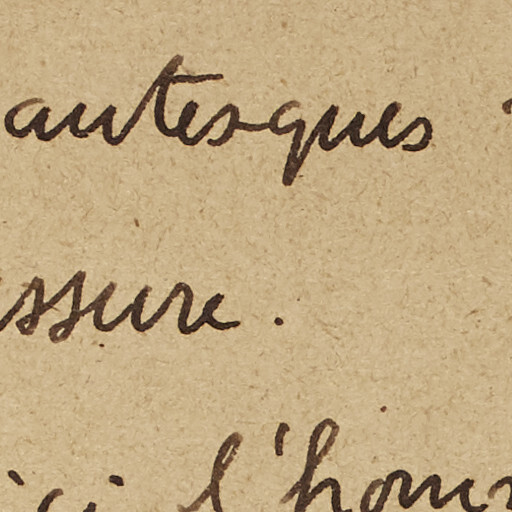 antesques
ssure.
ici l'hom